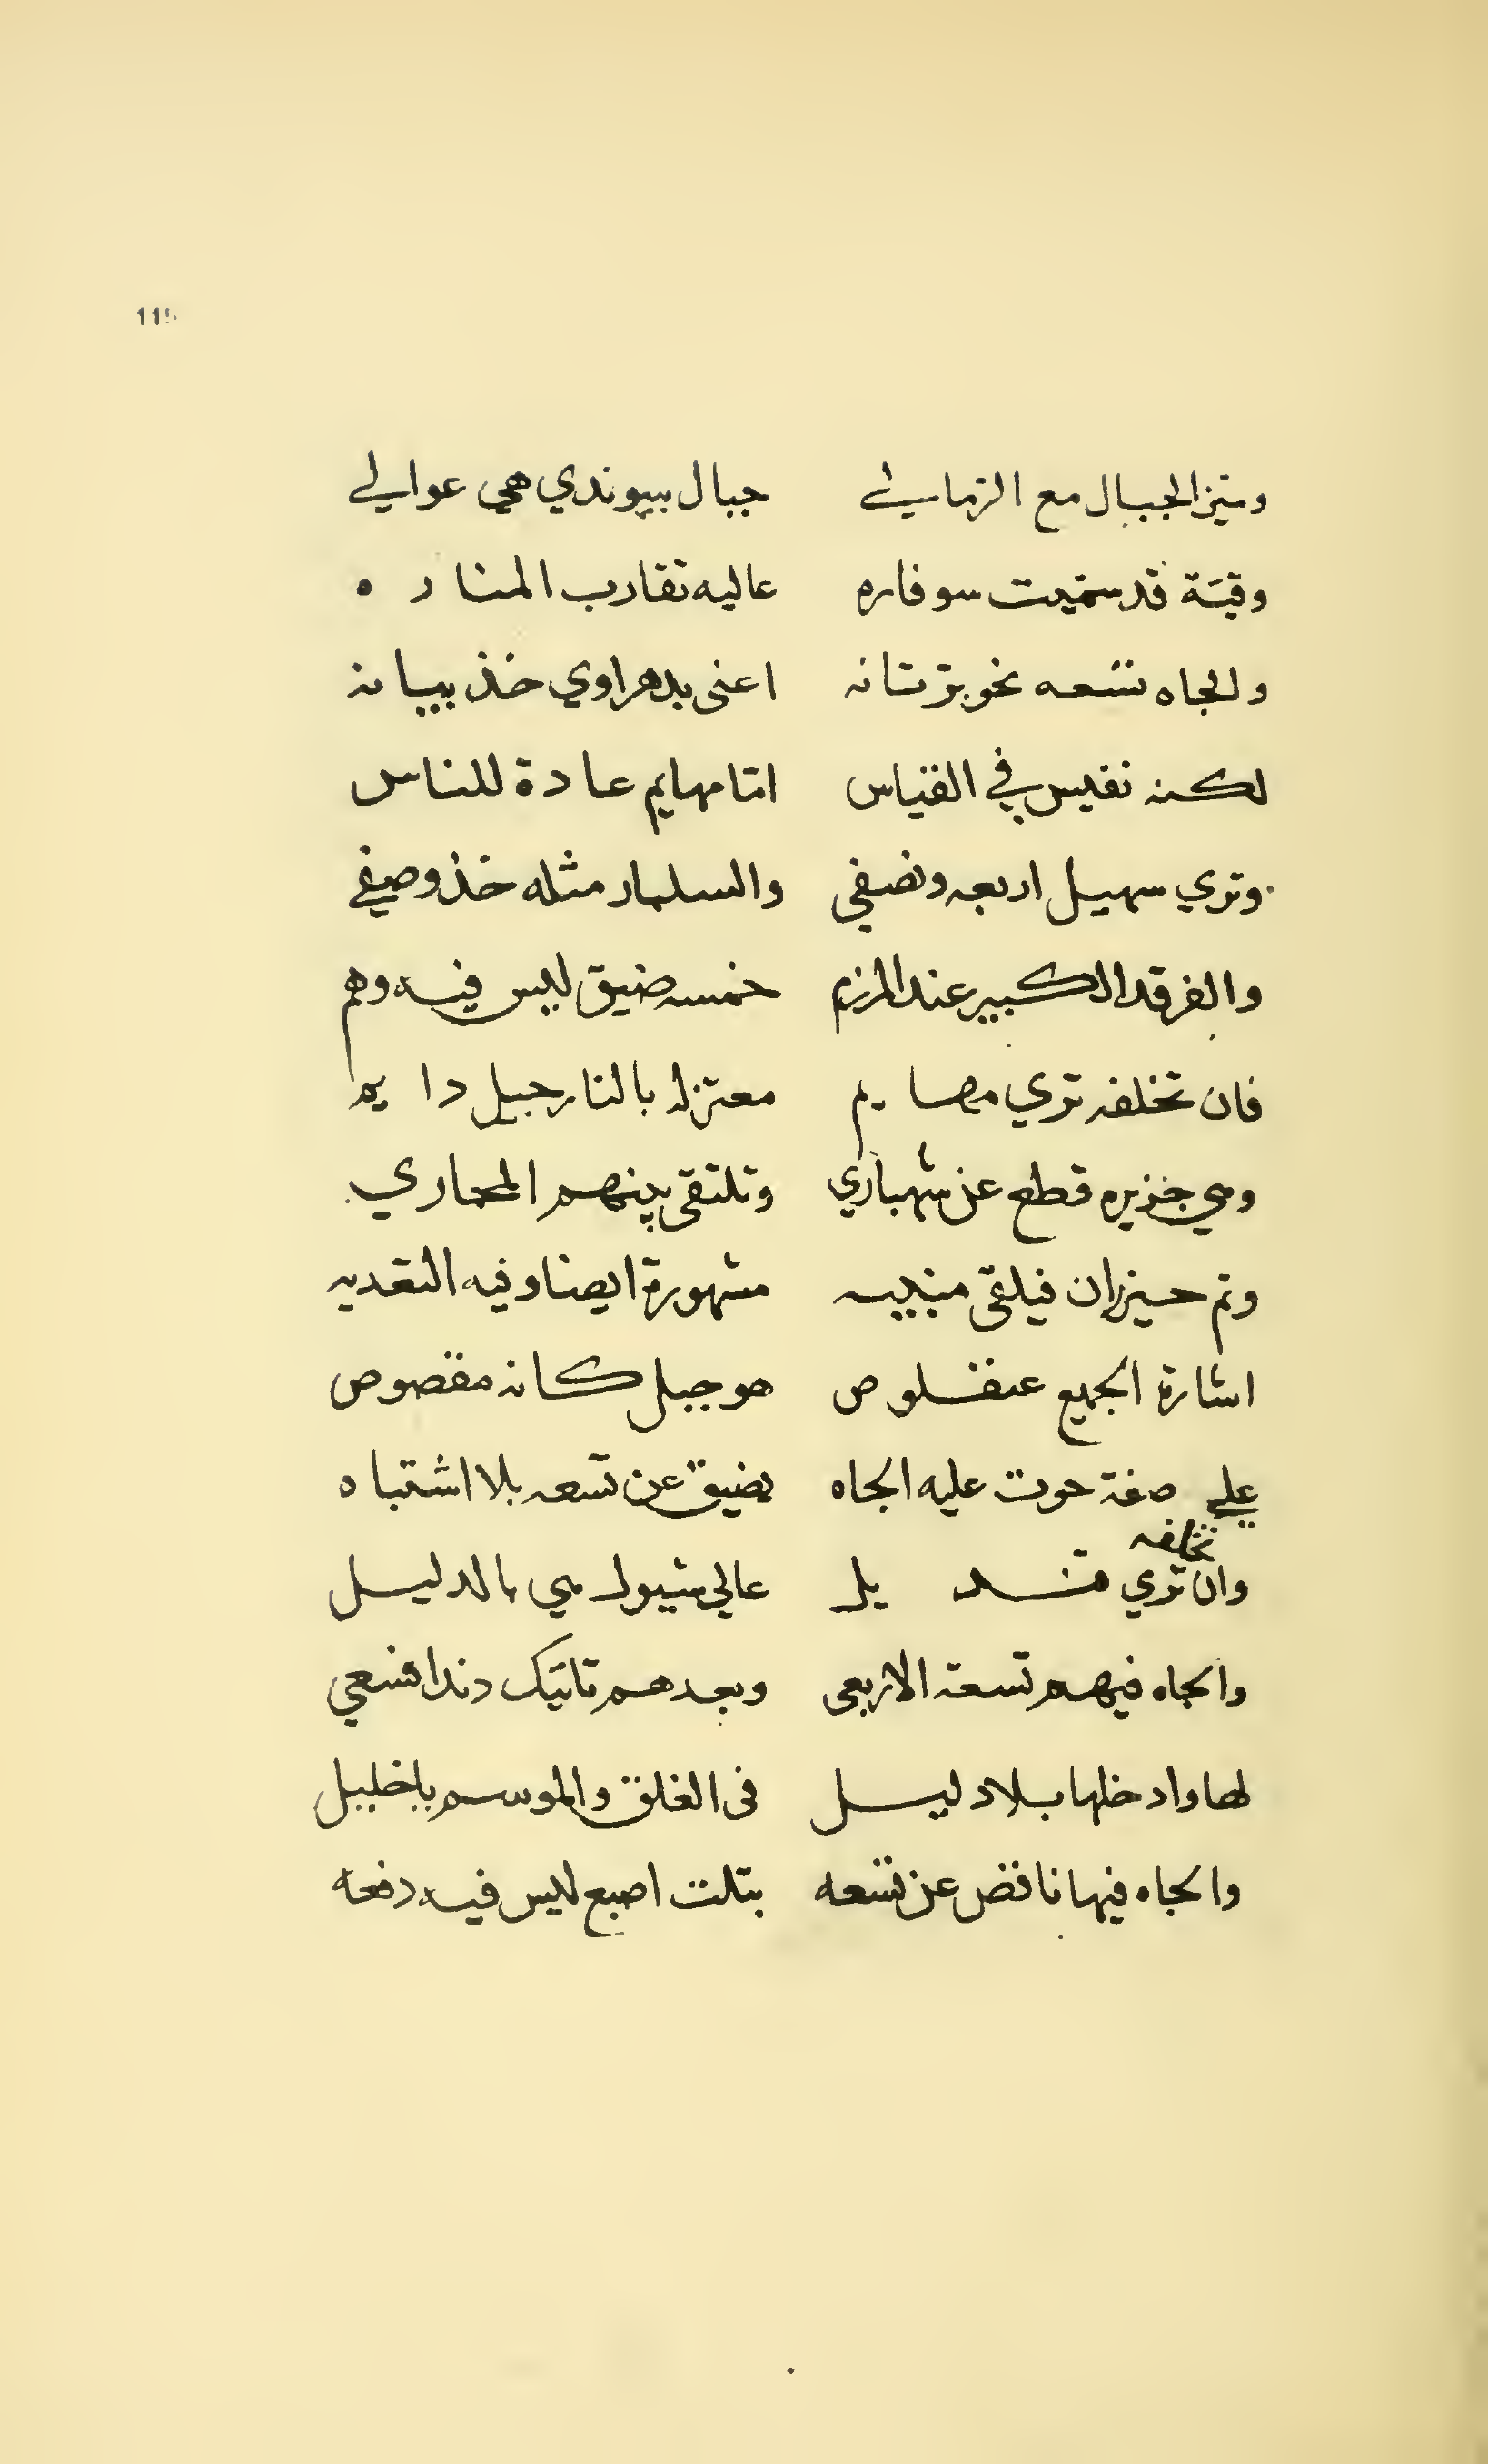 وميز الجبال مع الرماني جبال بيوندي هي عوالي
وقبة قد سميت سوفاره عاليه تقارب المناره
والجاه تسعه نحو برتانه اعني بدهراوي خذ بيانه
لكنه نفيس في القياس اما مهايم عادة للناس
وتري سهيل اربعه ونصفي والسلبار مثله خذ وصفي
والفرقد الكبير عند المرزم خمسه ضيق ليس فيه وهم
فان تخلفه تري مهايم معتزله بالنارجيل دايم
وهي جزيره قطع عن شهباري وتلتقي بينهم المجاري
وتم حيزران فيلقي منبيه مشهورة ايضا وفيه التعديه
اشارة الجميع عنفلوص هو جبل كانه مقصوص
علي صفة حوت عليه الجاه يضيق عن تسعه بلا اشتباه
تخلفه
وان تري يل عالي شيول هي بالدليل
والجاه فيهم تسعة الاربعي وبعدهم تاتيك دندا فسعي
لها وادخلها بلا دليل في الغلق والموسم ياخليل
والجاه فيها ناقص عن تسعه بتلت اصبع ليس فيه دفعه